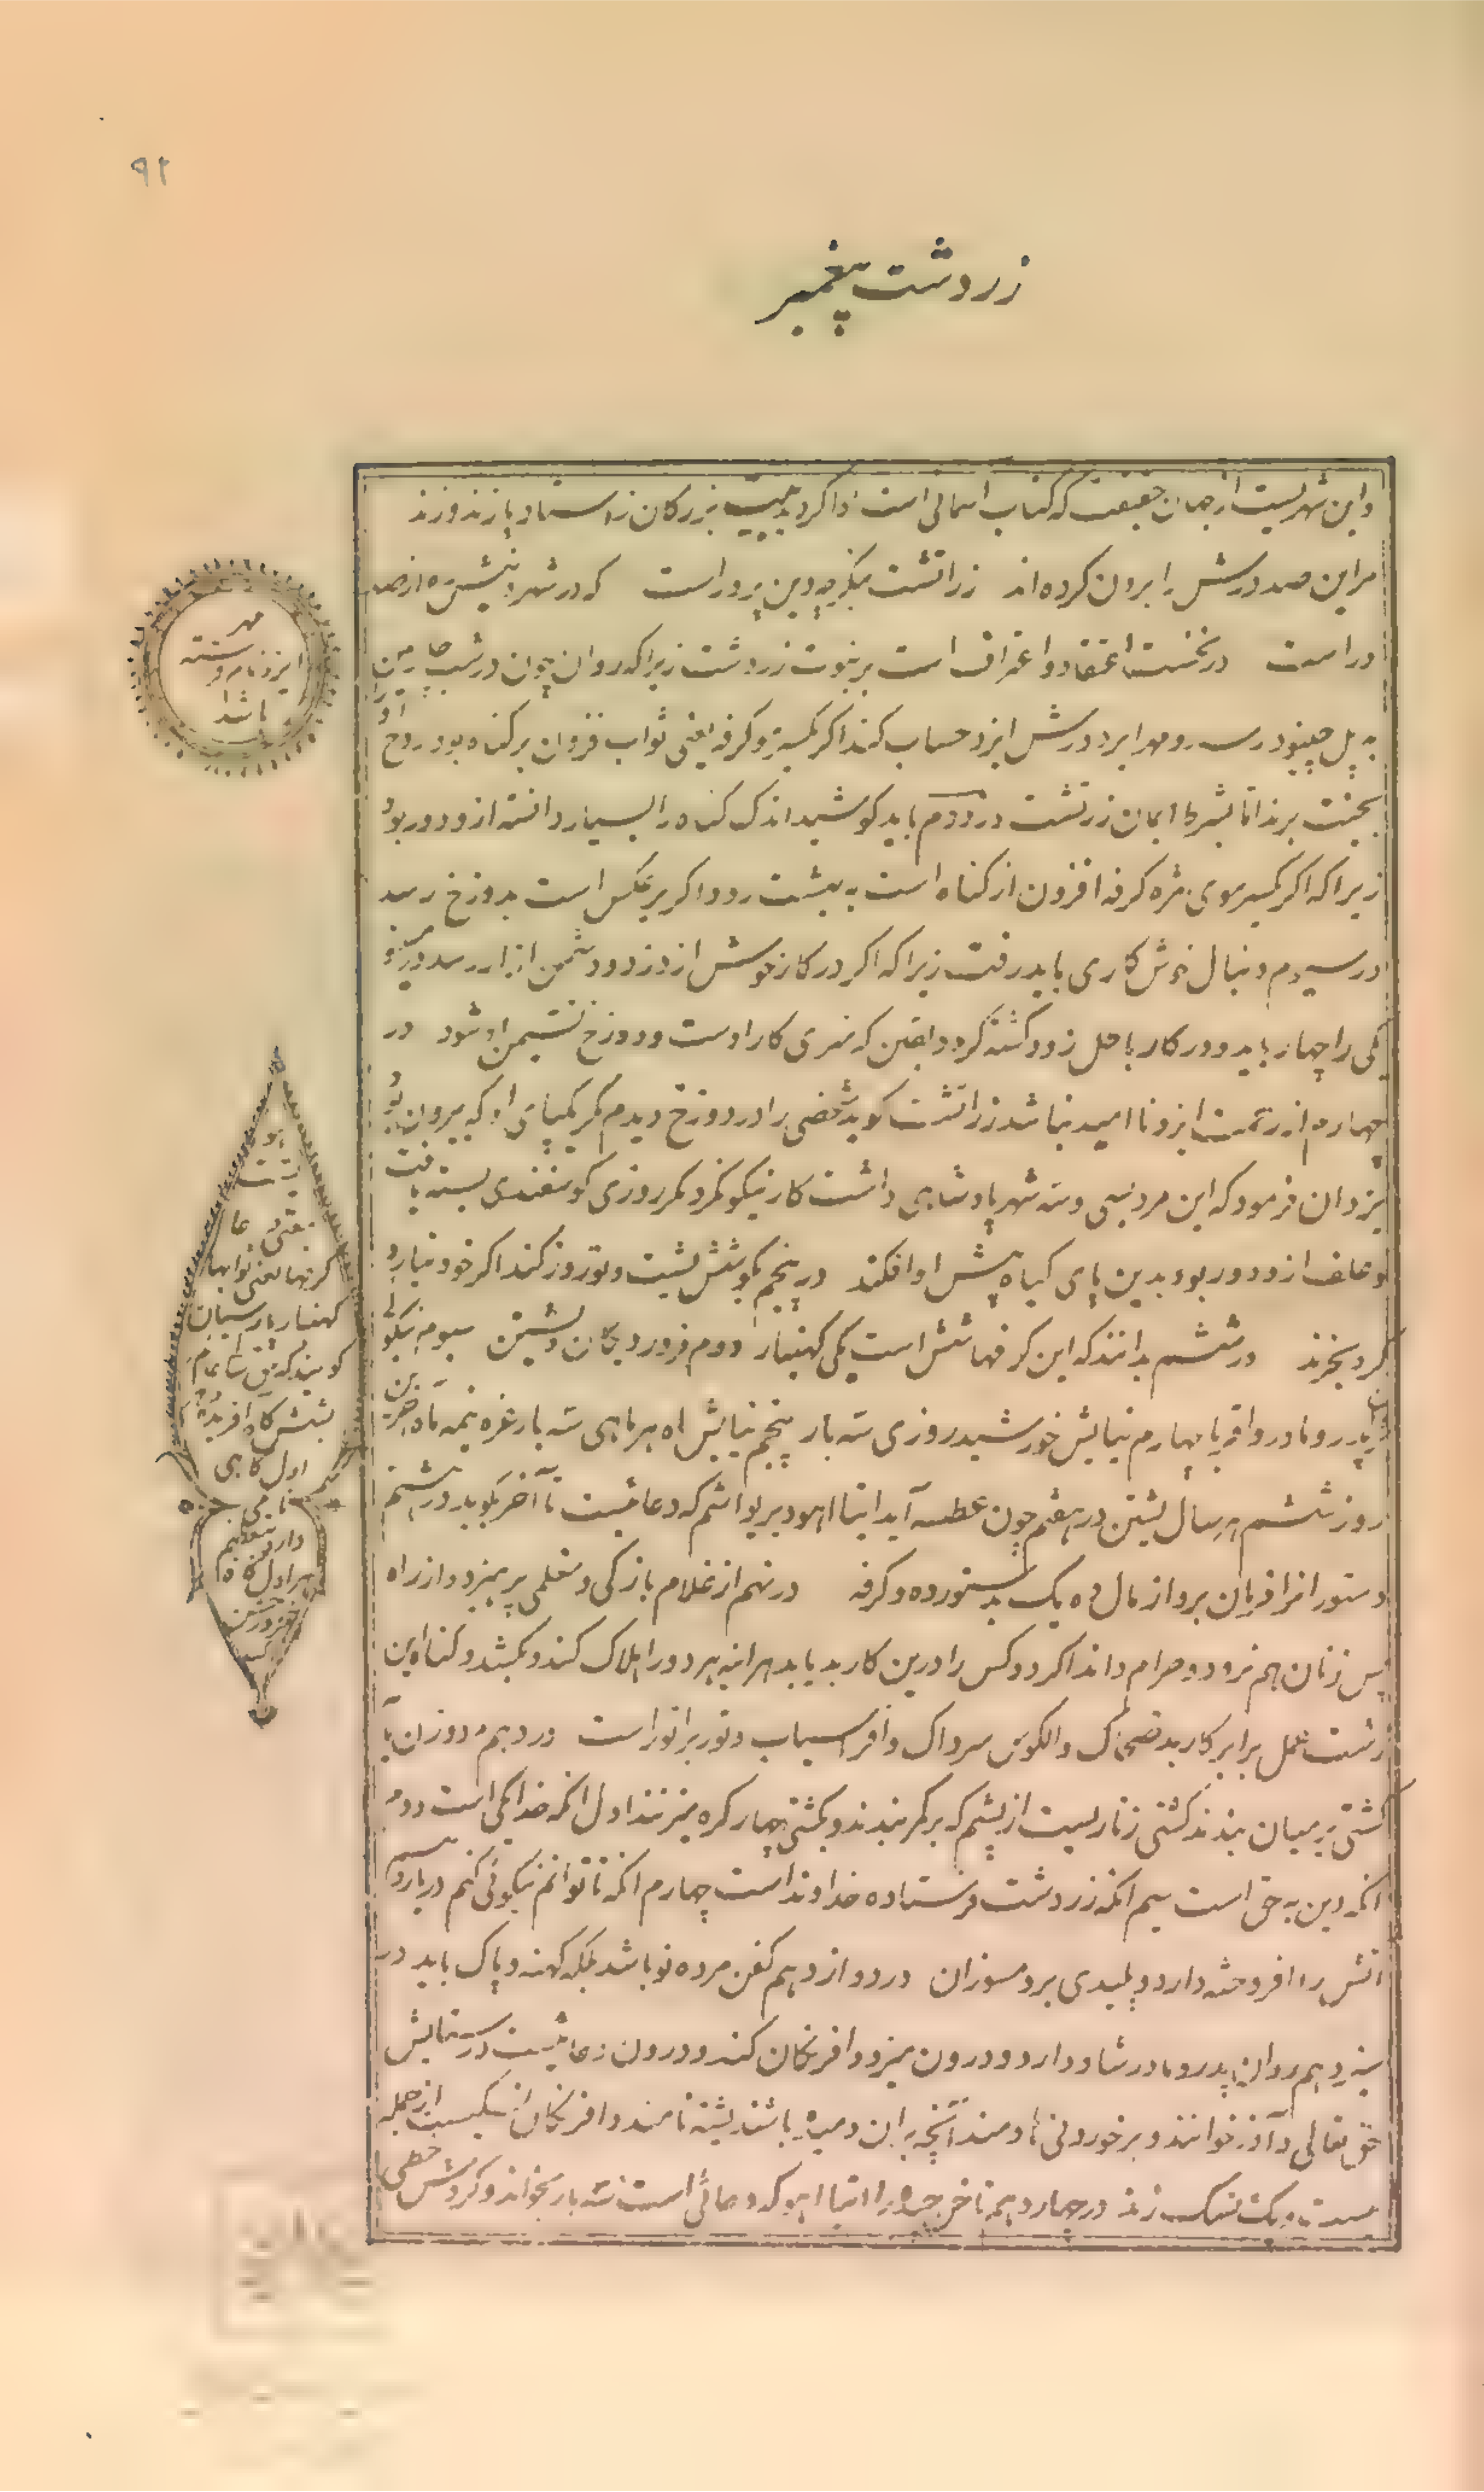 ۹۲
زردشت پیغمبر
و این شهریست از جهان حقیقت که کتاب اسمانی است بزرگان زاستا و پازند و زند
مر این صد درش را برون کرده‌اند زراتشت بدین پرور است که در شهرو
در است در نخست اعتقاد و اعتراف است بر نبوت زردشت زیراکه روان چون در شب چارمین
به پل چینود رسد و مهر ایزد و رش ایزد حساب کنند اکر یکسر مو کرفه یعنی ثواب فزون بر کناه بود روح او را
بجنت برند اما بشرط ایمان زرتشت در دویم باید کوشید اندک کناه را بسیار دانسته از و دور بود
زیراکه اکر یکسر موی مژه کرفه افزون از کناه است به بهشت رود و اکر بر عکس است بدوزخ رسد
در سیوم دنبال خوش کاری باید رفت زیراکه اکر در کار خوش از دزد و دشمن رسد
یکی را چهار یابد و در کار باطل زود کشته کردد و یقین که کار اوست و دوزخ نشیمن او شود در
چهارم از رحمت ایزد ناامید نباشد زراتشت کوید شخصی را در دوزخ دیدم مکر یک پای او که بیرون بود
یزدان فرمود که این مرد سی و سه شهر پادشاهی داشت کار نیکو نکرد مکر روزی کوسفندی بسته یافت
و علف از و دور بود بدین پای کیاه پیش او افکند در پنجم بکوشش یشت و نوروز کند اکر خود نیارد
کرد بخرند در ششم بدانند که این کرفها شش است یکی کهنبار دوم فروردیکان یشتن سیوم نیکوئی
پدر و مادر و اقربا چهارم نیایش خورشید روزی سه بار پنجم نیایش ماه هر ماهی سه بار غره نیمه ماه آخرین
روز ششم هر سال یشتن در هفتم چون عطسه آید ایتا اهو ویریو اشم که دعائیست تا آخر بکوید در هشتم
دستور انرا فرمان برد از مال ده یک بدستور ده و کرفه در نهم از غلام بازکی و مغلمی پرهیزد و از راه
پس زنان هم نرود و حرام داند اکر دو کس را درین کار بد یابد هر اینه هر دو را هلاک کند و بکشد و کناه این
زشت عمل برابر کار بد ضحاک و الکوس سرداک و افراسیاب و تور براتور است در دهم مرد و زن را
کشتی بر میان بندند کشتی زناریست از پشم که بر کمر بندند و بکشتی چهار کره میزنند اول انکه خدا یکی است دوم
انکه دین به حق است سیم انکه زردشت فرستاده خداوند است چهارم انکه تا توانم نیکوئی کنم در یازدهم
اتش را افروخته دارد و پلیدی برو مسوزان در دوازدهم کفن مرده نو باشد بلکه کهنه و پاک باید در
سیزدهم روان پدر و مادر شاد دارد و درون میزد و افرنکان کند و درون دعائیست در ستایش
حق تعالی و آذر خوانند و بر خوردنی دمند آنچه بر این دمیده باشند یشته نامند و افرنکان نسکیست از جمله
بیست و یک نسک زند در چهاردهم ناخن چیده را ایتا اهو که دعائی است سه بار بخواند و کردش خطی
مهر
ایزد نام فرشته
باشد
یعنی دعا
کرفها یعنی ثوابها
کهنبار پارسیان
کویند که حق تعالی عالم
بشش کاه آفریده
اول کاهی
نامی
دارد